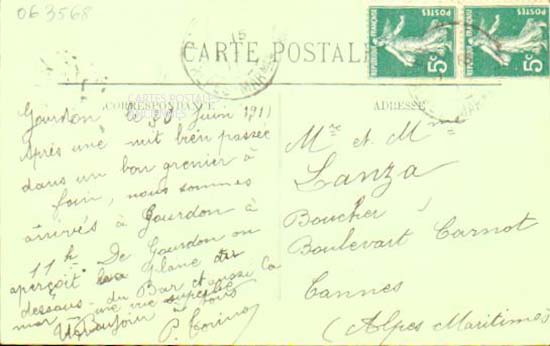 063568
CARTE POSTALE
POSTES
RÉPUBLIQUE FRANÇAISE
5c
POSTES
RÉPUBLIQUE FRANÇAISE
5c
CORRESPONDANCE
CARTES POSTALES
ANCIENNES
Gourdon le 30 Juin 1911
Après une nuit bien passée
dans un bon grenier à
foin, nous sommes
arrivés à Gourdon à
11 h. De Gourdon on
aperçoit
dessous du Bar et aussi la
mer une vue superbe
Un Bonjour à tous
P.
ADRESSE
Mr et Mme
Lanza
Boucher
Boulevart Carnot
Cannes
(Alpes Maritimes)